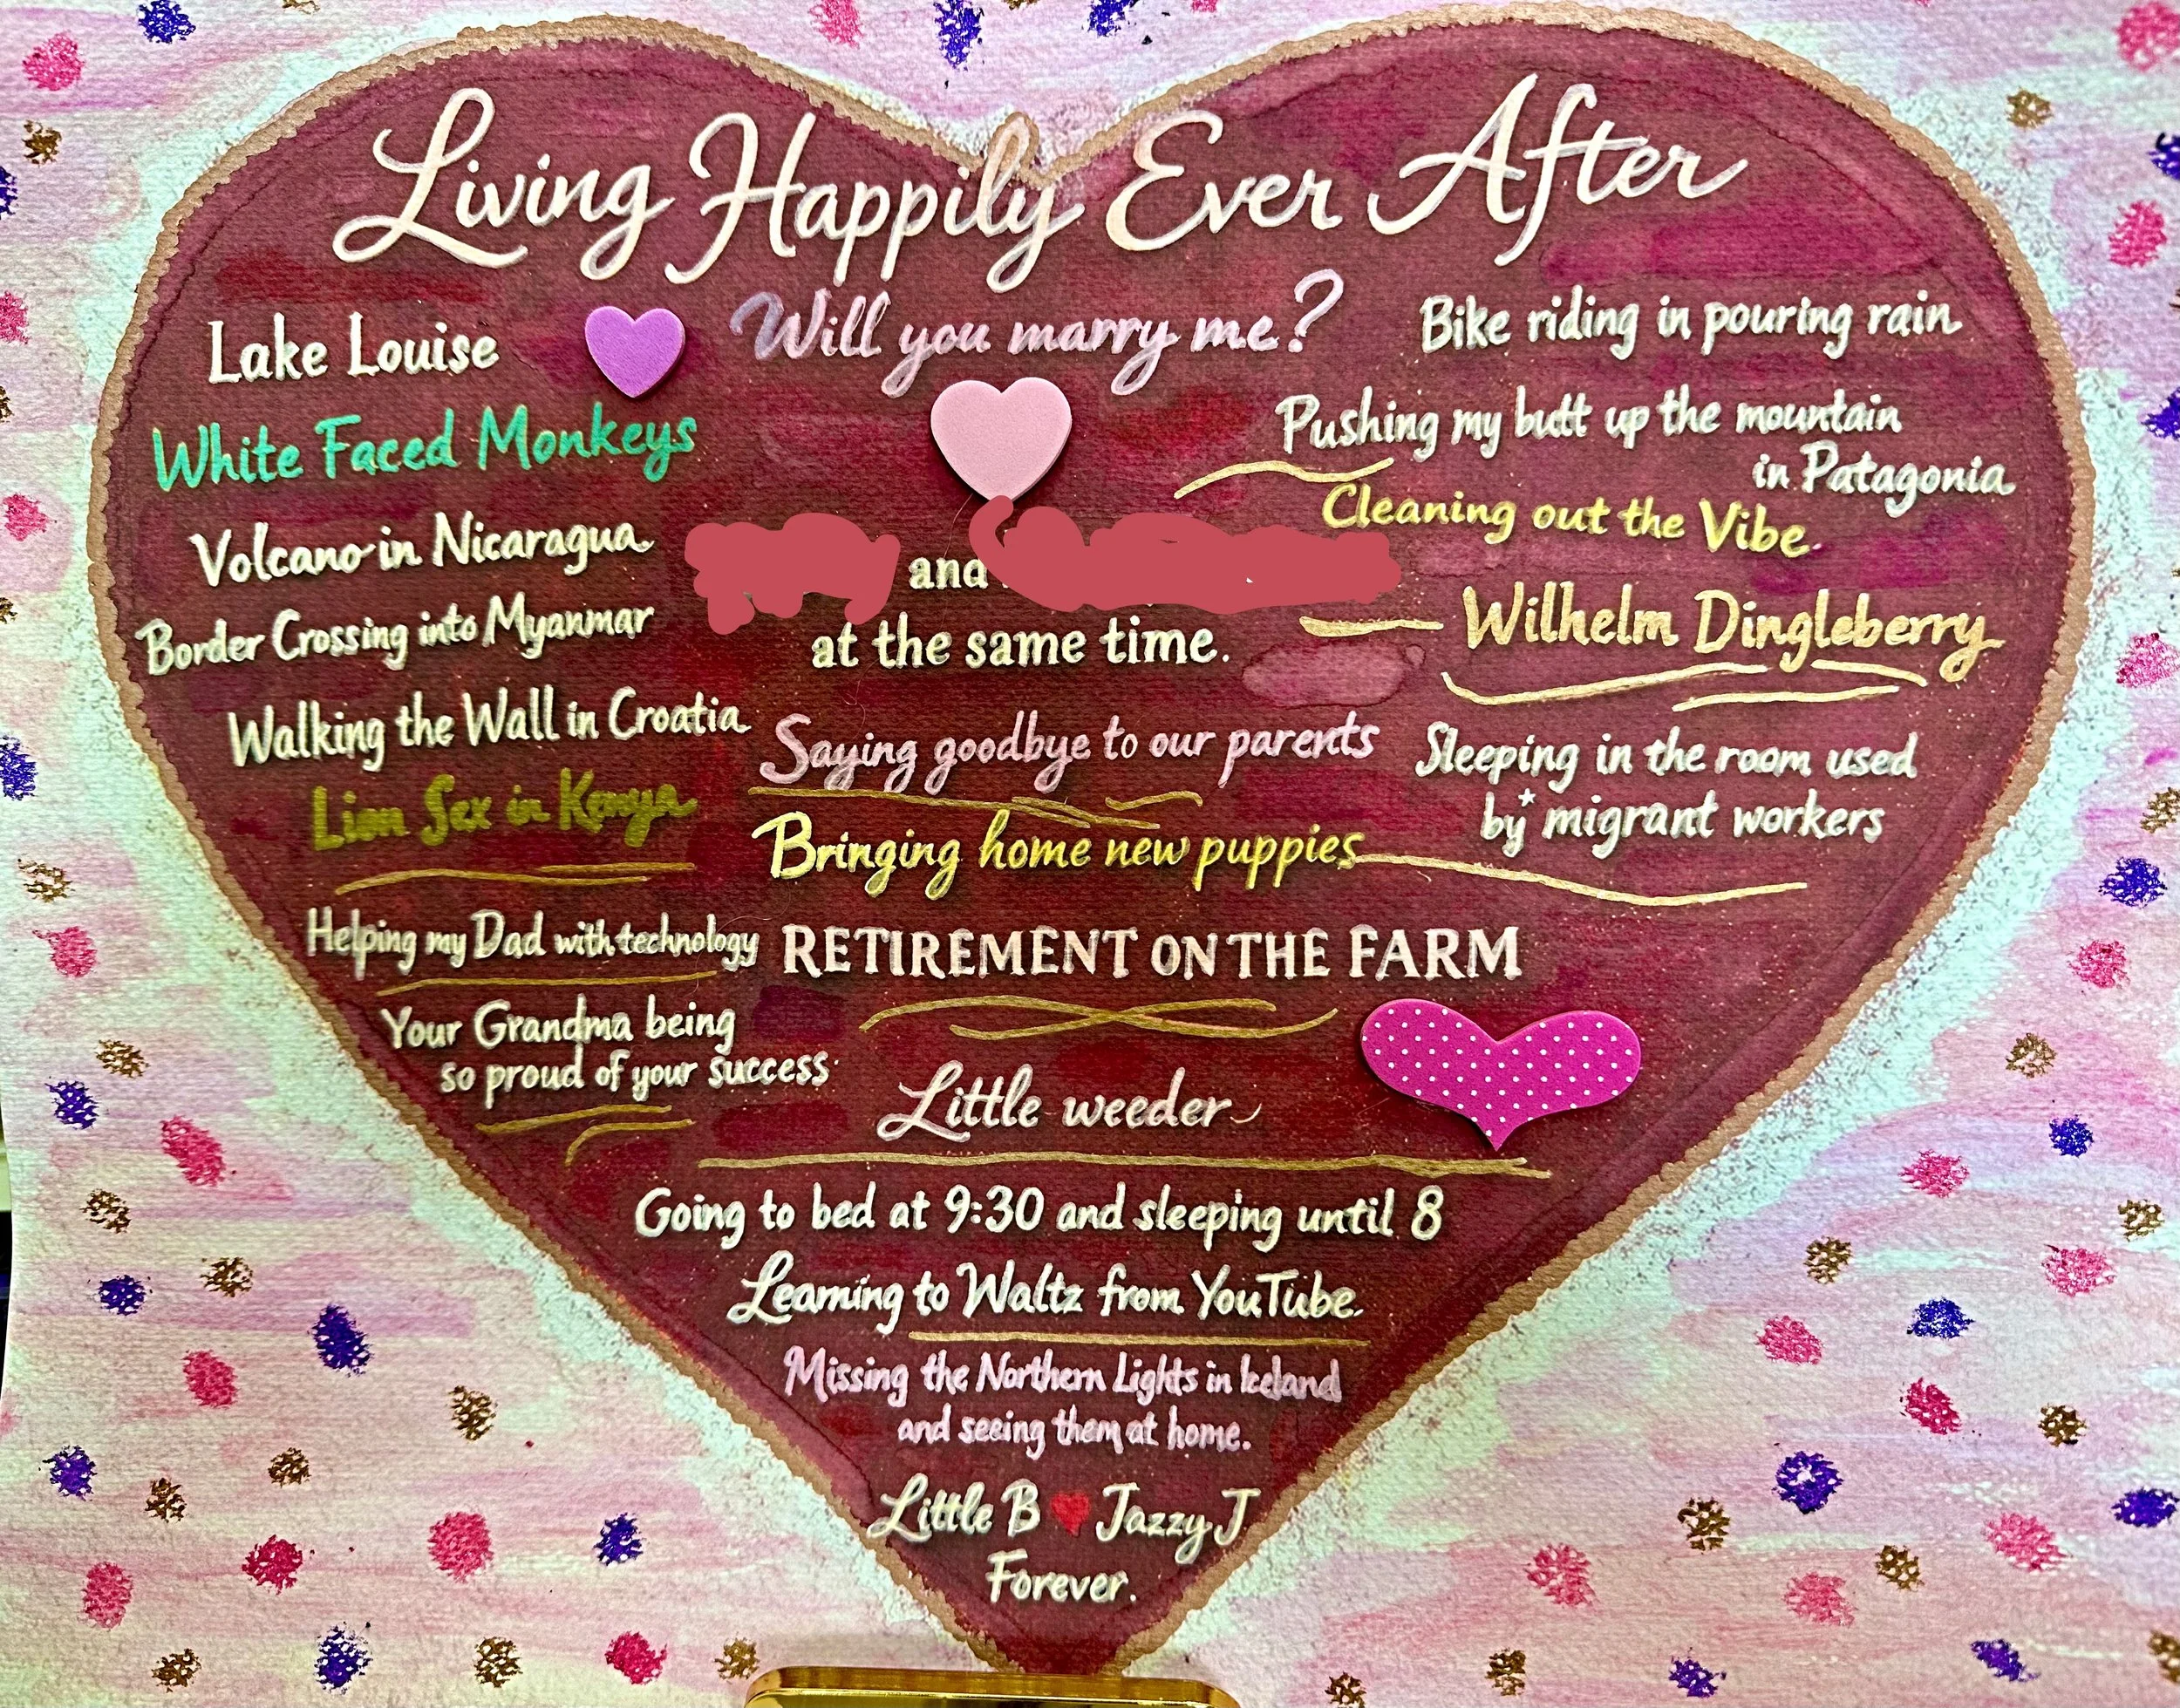 Living Happily Ever After
Will you marry me?
Lake Louise
White Faced Monkeys
Volcano in Nicaragua
Border Crossing into Myanmar
Walking the Wall in Croatia
Lion Sex in Kenya
Helping my Dad with technology
Your Grandma being
so proud of your success
and
at the same time.
Saying goodbye to our parents
Bringing home new puppies
RETIREMENT ON THE FARM
Little weeder
Bike riding in pouring rain
Pushing my butt up the mountain
in Patagonia
Cleaning out the Vibe.
Wilhelm Dingleberry
Sleeping in the room used
by migrant workers
Going to bed at 9:30 and sleeping until 8
Learning to Waltz from YouTube.
Missing the Northern Lights in Iceland
and seeing them at home.
Little B ♥ Jazzy J
Forever.